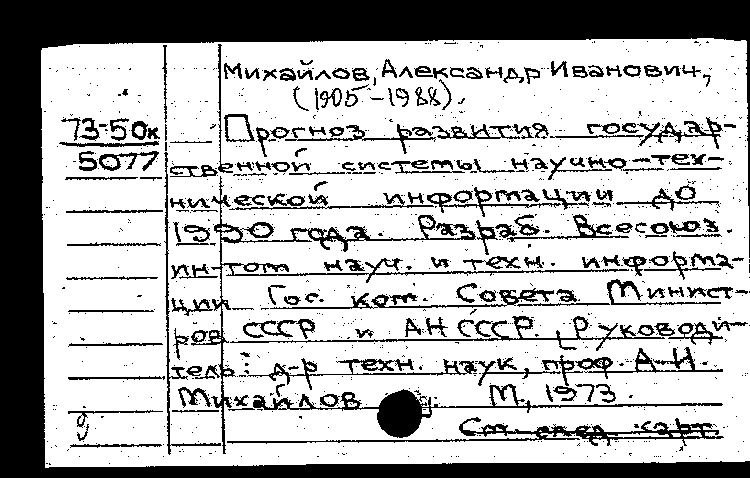 Михайлов, Александр Иванович,
(1905-1988).
73-50к
5077
Прогноз развития государ-
ственной системы научно-тех-
нической информации до
1990 года. Разраб. Всесоюз.
ин-том науч. и техн. информа-
ции Гос. ком. Совета Минист-
ров СССР и АН СССР. [Руководи-
тель: д-р техн. наук, проф. А.И.
Михайлов]. М., 1973.
См. след. карт.